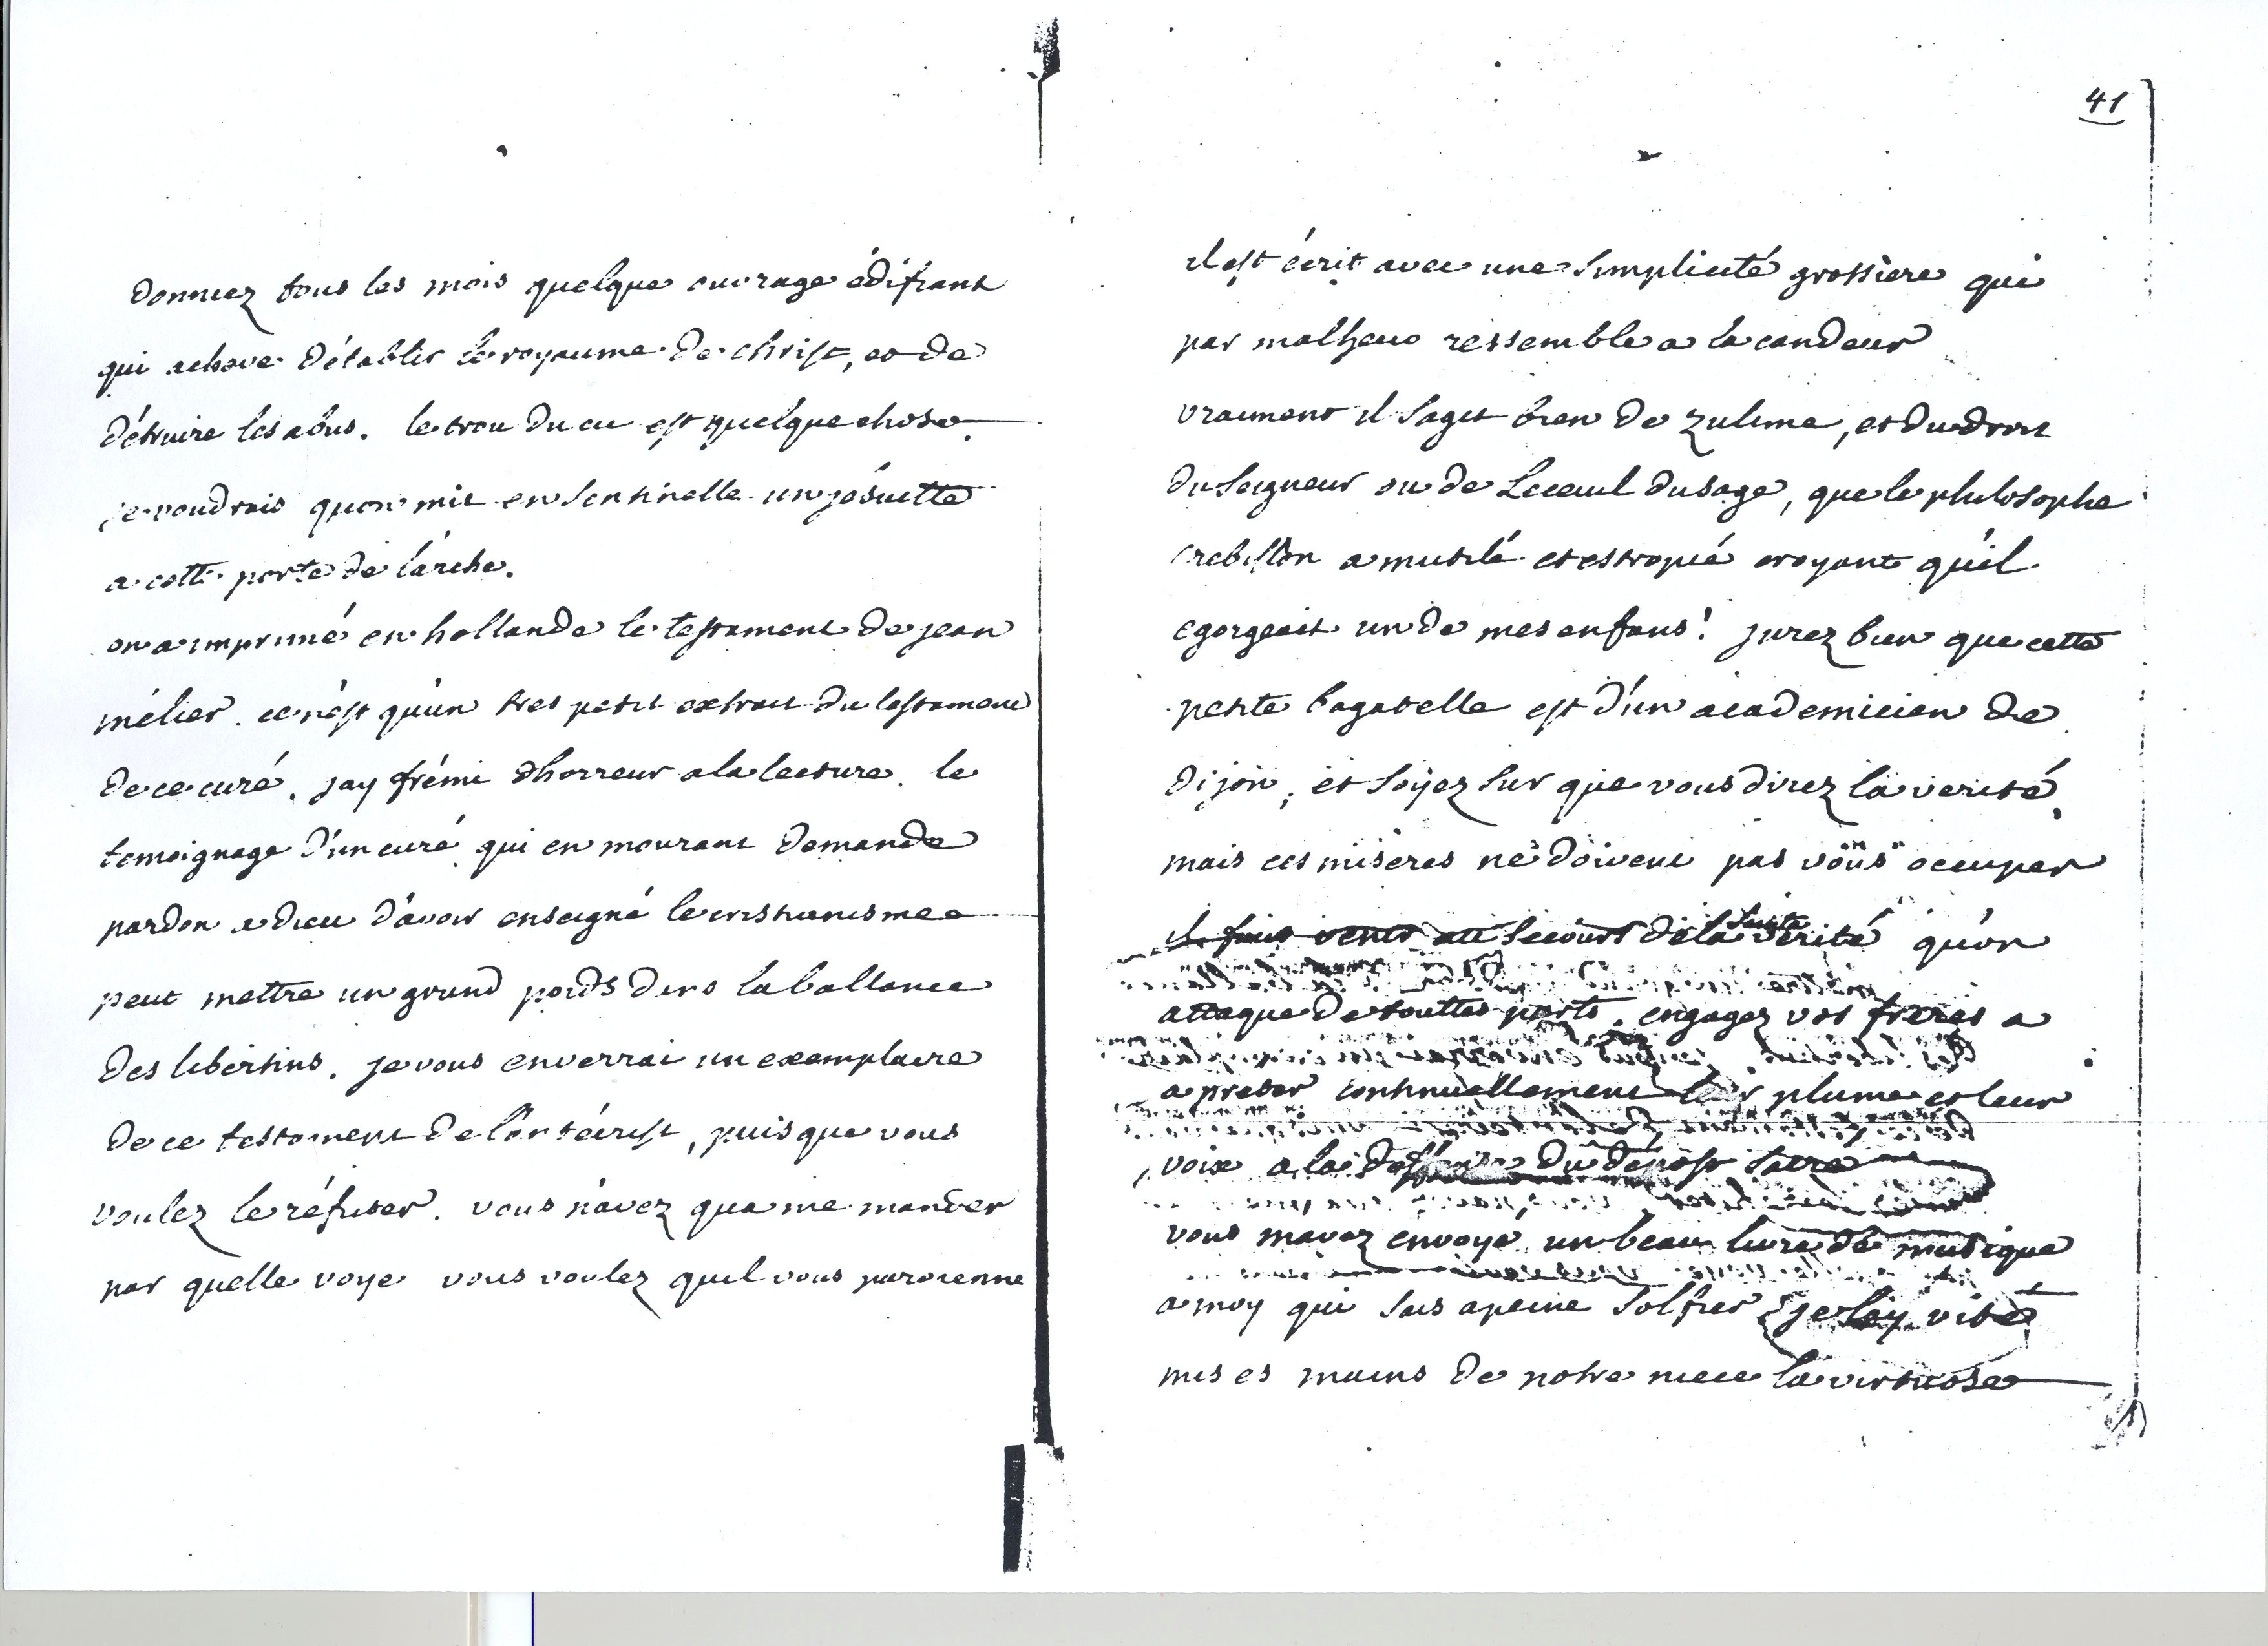 donnez tous les mois quelque ouvrage édifiant
qui acheve d'établir le royaume de christ, et de
détruire les abus. le trou du cu est quelque chose.
je voudrais quon mit en sentinelle un jésuitte
a cette porte de l'arche.
on a imprimé en hollande le testament de jean
mélier. ce n'est qu'un tres petit extrait du testament
de ce curé. jay frémi dhorreur a la lecture. le
temoignage d'un curé qui en mourant demande
pardon a dieu d'avoir enseigné le cristianisme
peut mettre un grand poids dans la ballance
des libertins. je vous enverrai un exemplaire
de ce testament de l'antécrist, puisque vous
voulez le réfuter. vous n'avez qua me mander
par quelle voye vous voulez quil vous parvienne
41
il est écrit avec une simplicité grossiere qui
par malheur ressemble a la candeur
vraiment il sagit bien de zulime, et du droit
du seigneur ou de L'ecueil du sage, que le philosophe
crebillon a mutilé et estropié croyant qu'il
egorgeait un de mes enfans! jurez bien que cette
petite bagatelle est d'un academicien de
dijon, et soyez sur que vous direz la verité.
mais ces miseres ne doivent pas vous occuper
il faut venir au secours de la sainte verité qu'on
attaque de touttes parts. engagez vos freres a
a preter continuellement leur plume et leur
voix a la deffense du dépost sacré
vous mavez envoyé un beau livre de musique
a moy qui sais a peine solfier je lay vite
mis es mains de notre niece la virtuose